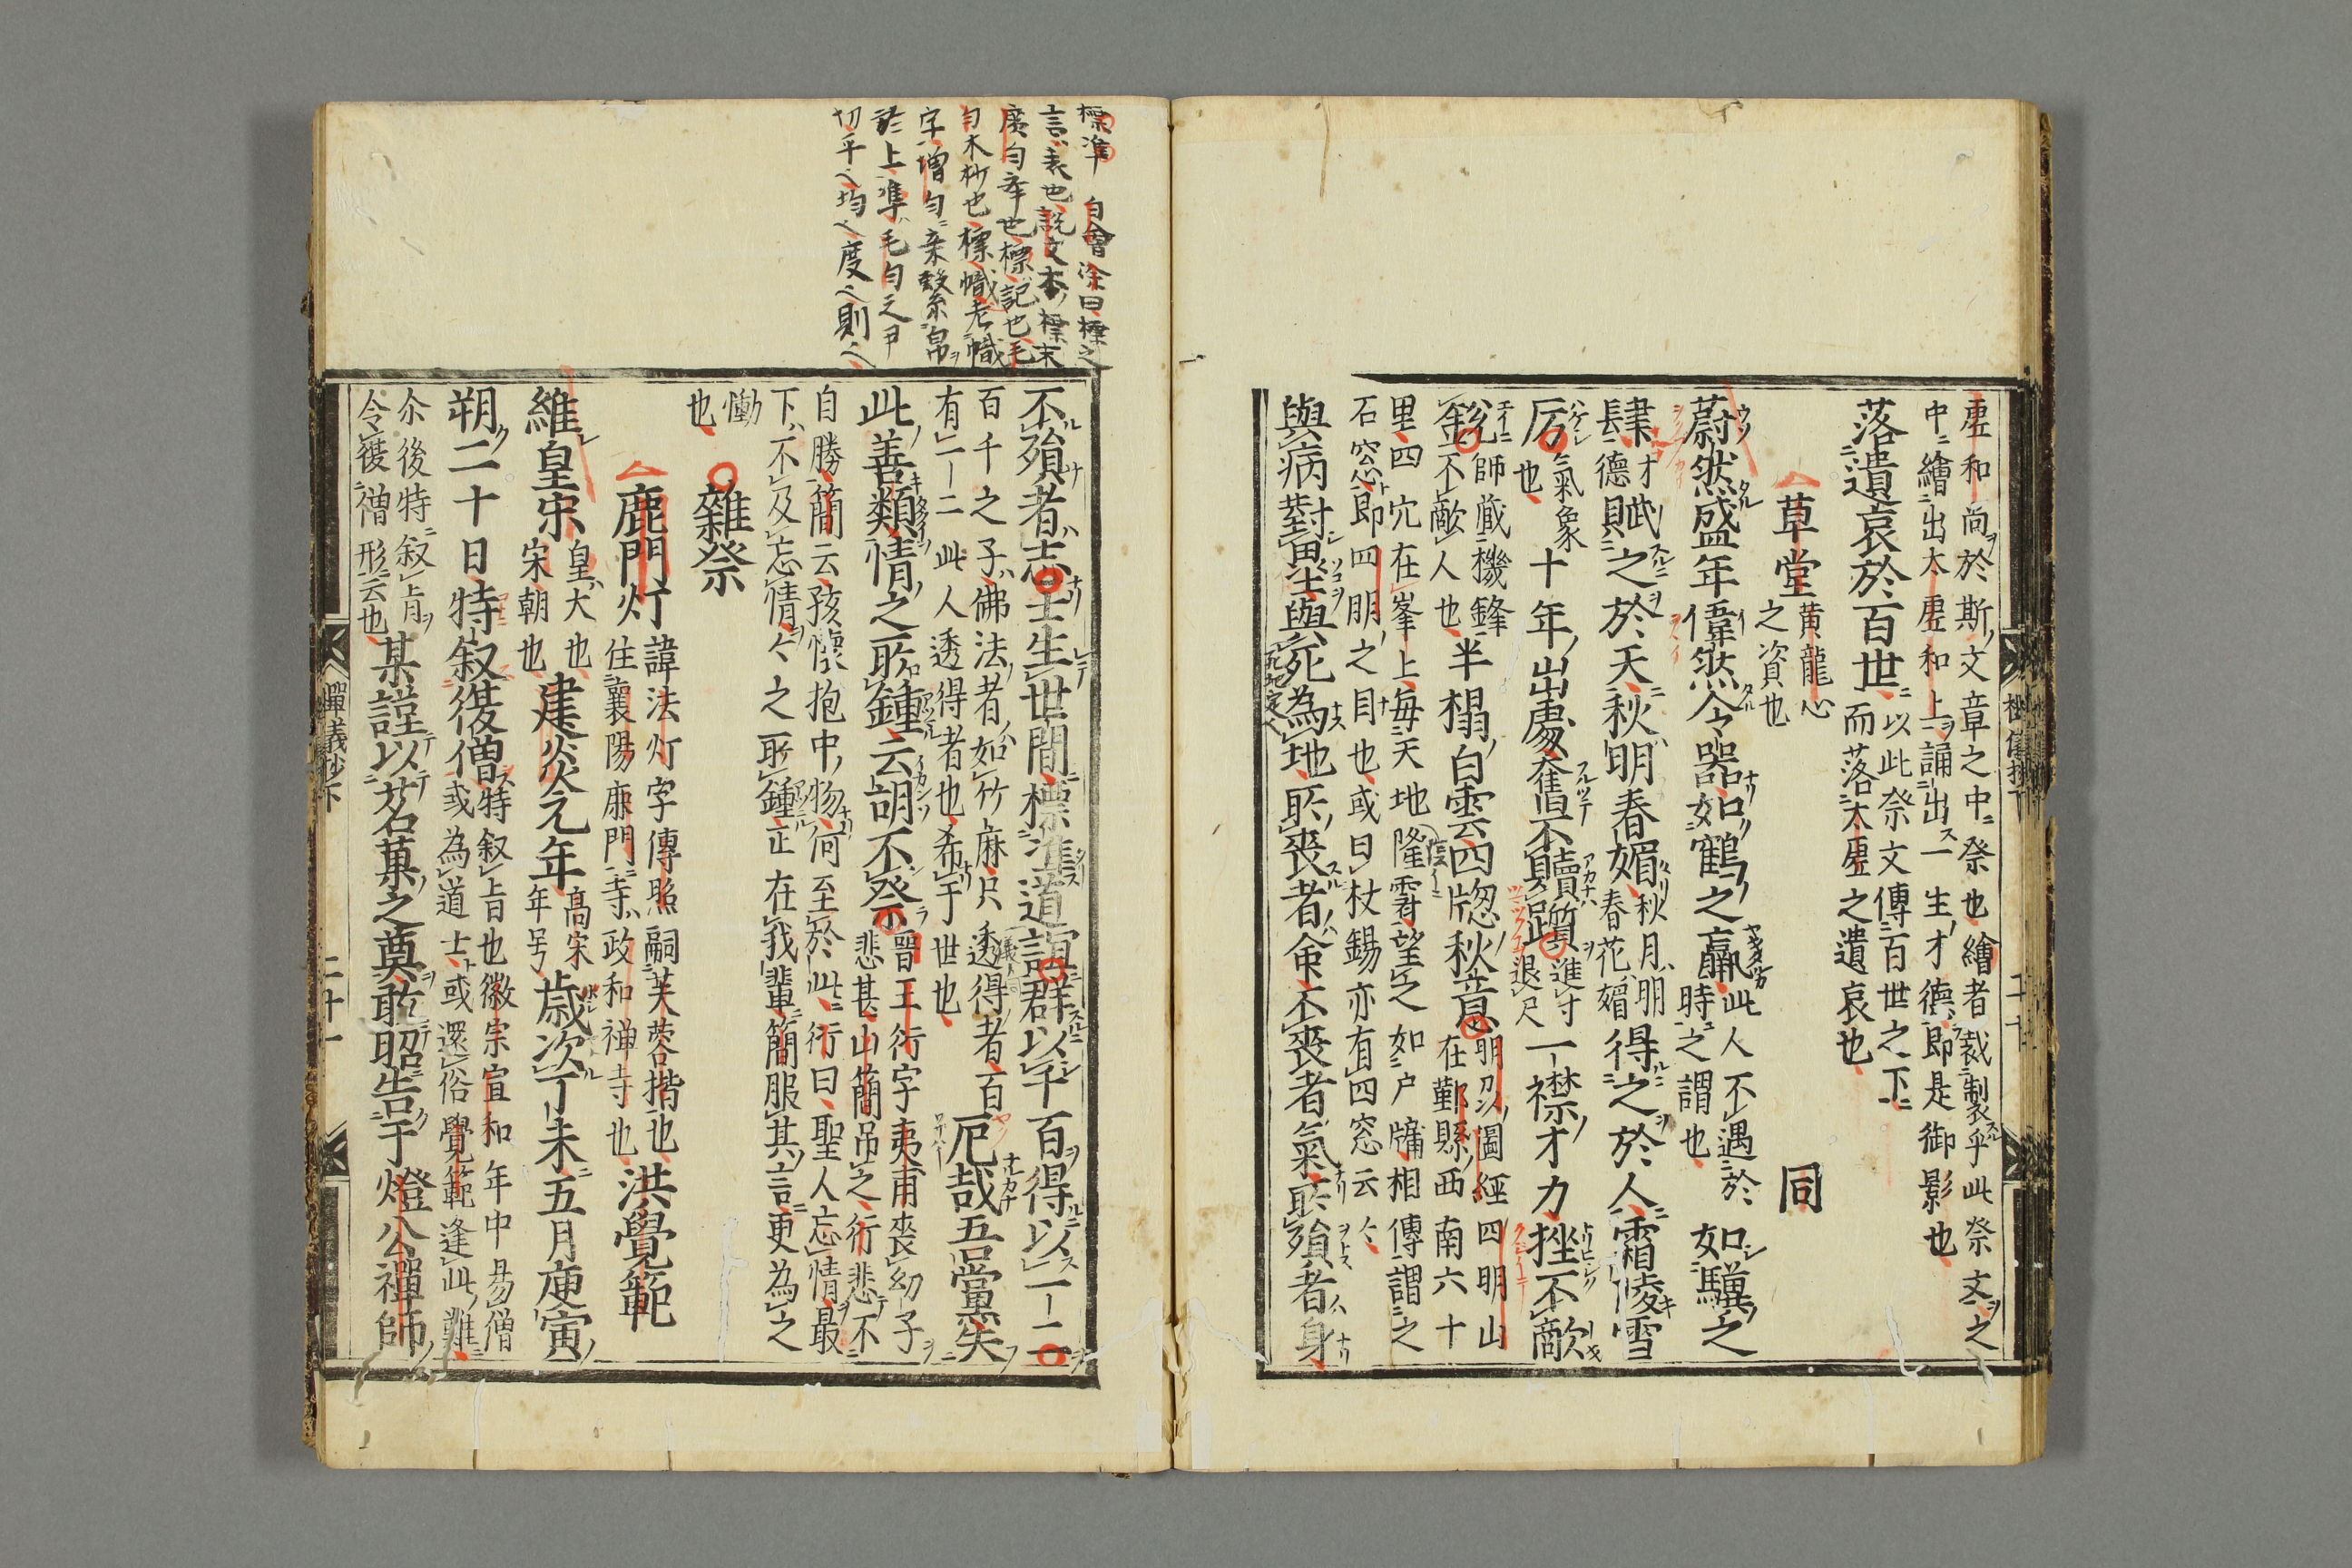 虛和尚於斯文章之中祭也繪者裁製乎此祭文之
中繪出太虛和上誦出一生才德即是御影也
落遺哀於百世以此祭文傳百世之下
而落太虛之遺哀也
草堂黄龍心
之資也 同
蔚然盛年偉然令器如鶴之羸此人不遇於
時之謂也如驥之
肆才
長德賦之於天秋明春媚秋月明
春花媚得之於人霜陵雪
厉氣象
也十年出處奮不贖躓進寸
退尺一襟才力挫不敵
銳師蔵機鋒
鋒不敵人也半榻白雲四牕秋意明圖經四明山
在鄞縣西南六十
里四穴在峯上毎天地隆霽望之如户牗相傳謂之
石窓即四明之目也或曰杖錫亦有四窓云々
與病對壘與死為地所喪者命不喪者氣所殞者身
不殞者志士生世間標準道誼群以千百得以一二
百千之子佛法者如竹麻只透得者百
有一二此人透得者也希于世也厄哉吾黨失
此善類情之所鍾云胡不祭晉王衍字夷甫喪幼子
悲甚山簡吊之衍悲不
自勝簡云孩懷抱中物何至於此衍曰聖人忘情最
下不及忘情々之所鍾正在我輩簡服其言更為之
慟
也
雜祭
鹿門灯諱法灯字傳照嗣芙蓉揩也
住襄陽康門寺政和禅寺也洪覺範
維皇宋皇大也
宋朝也建炎元年高宋
年号歲次丁未五月庚寅
朔二十日特叙復僧特叙旨也徽宗宣和年中易僧
或為道士或還俗覺範逢此難
尒後特叙旨
令復禮形云也某謹以茗菓之奠敢昭告于燈公禪師
禪儀抄下
二十一
標準 匀會徐曰標之
言表也説文本標末
廣匀举也標記也毛
匀木杪也標幟老幟
字増匀
上準毛匀之尹
切平ヘ均ヘ度ヘ則ヘ